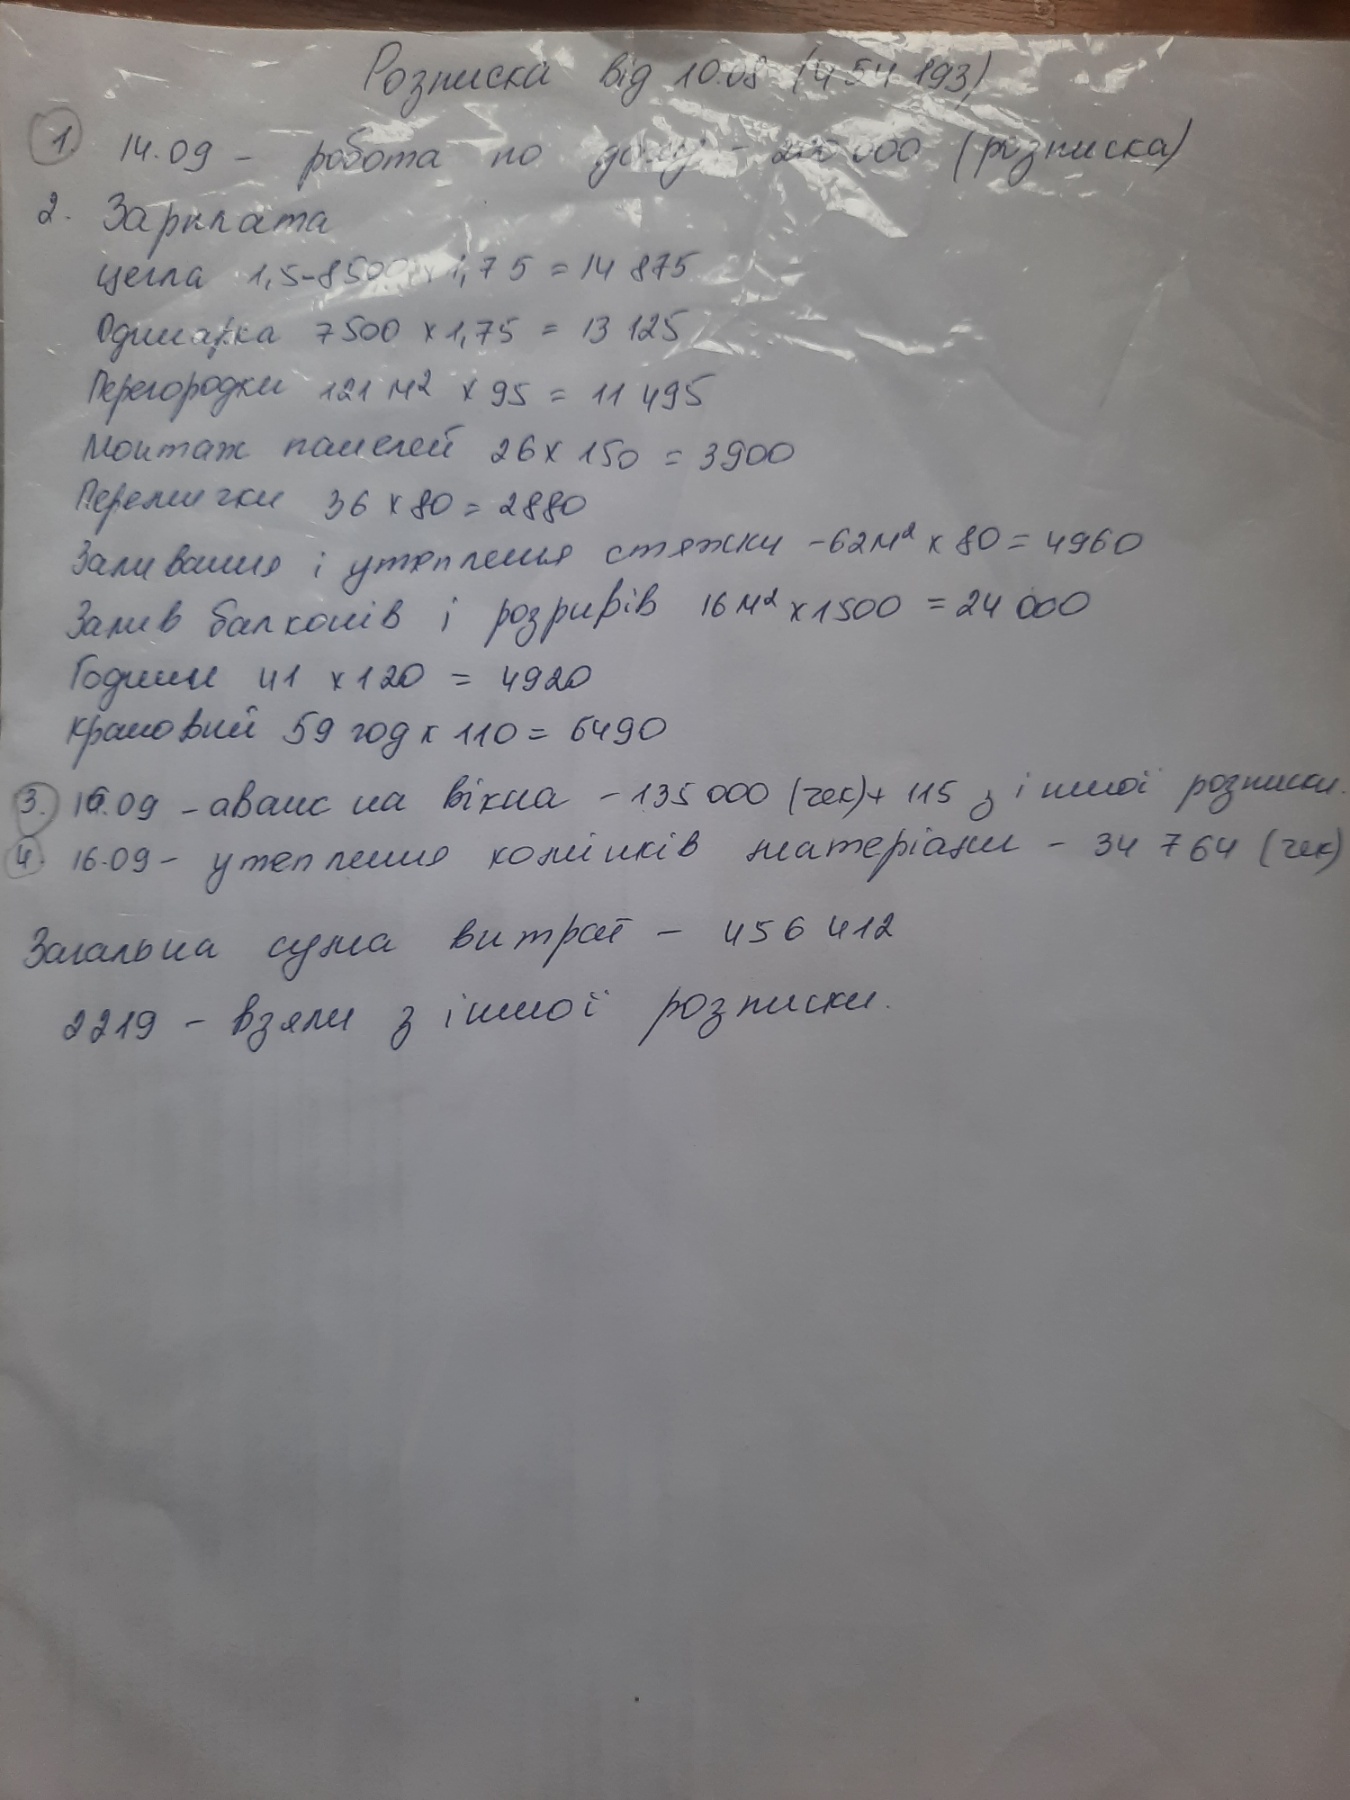 Розписка від 10.08 (454 193)
1. 14.09 - робота по дому - 200 000 (розписка)
2. Зарплата
цегла 1,5-8500 x 1,75 = 14 875
Одинарка 7500 x 1,75 = 13 125
Перегородки 121 м² x 95 = 11 495
Монтаж панелей 26 x 150 = 3900
Перемички 36 x 80 = 2880
Заливання і утеплення стяжки - 62 м² x 80 = 4960
Залив балконів і розривів 16 м² x 1500 = 24 000
Години 41 x 120 = 4920
Крановий 59 год x 110 = 6490
3. 16.09 - аванс на вікна - 135 000 (чек) + 115 з іншої розписки.
4. 16.09 - утеплення комінків матеріали - 34 764 (чек)
Загальна сума витрат - 456 412
2219 - взяли з іншої розписки.